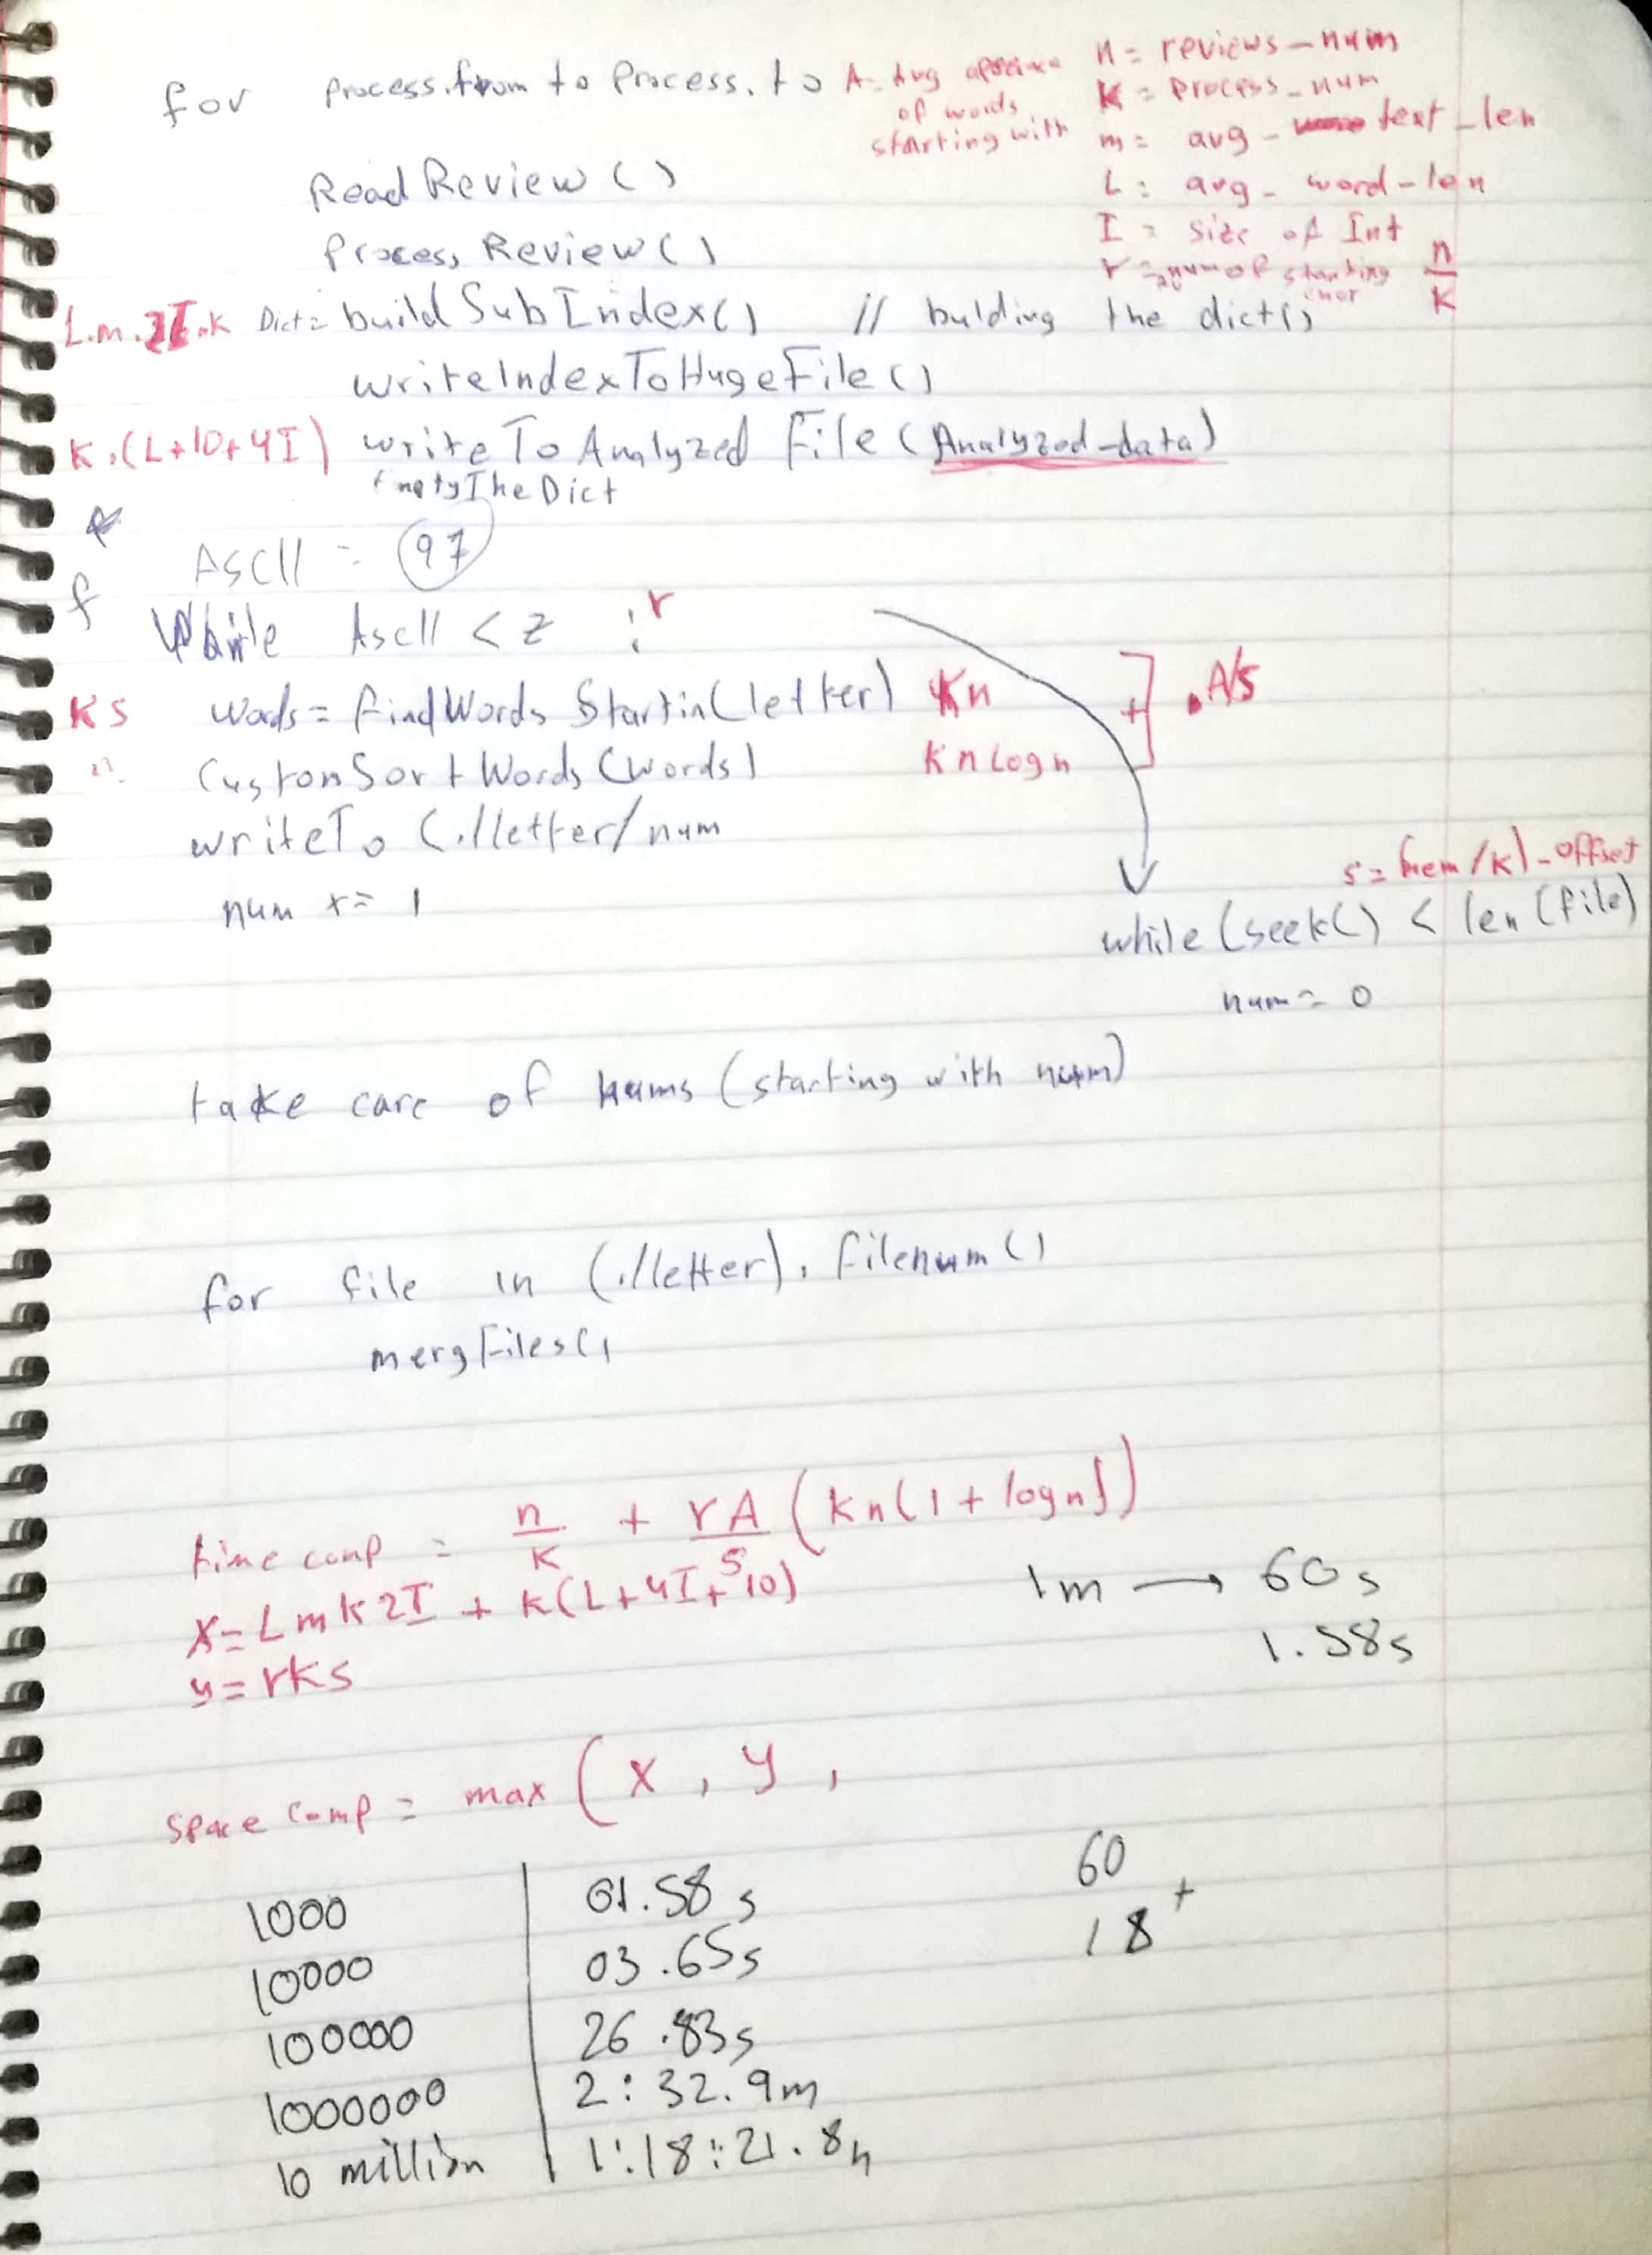 for process.from to Process.to
A = Avg
of words
starting with
n = reviews_num
K = Process_num
m = avg - text_len
L = avg - word-len
I = size of Int
r = num of starting char
n/K
Read Review ()
Process Review ()
L.m.2I.K Dict = build SubIndex() // bulding the dict()
writeIndexToHugeFile ()
K.(L+10+4I) write To Analyzed File (Analyzed-data)
EmptyTheDict
AscII = 97
f
While AscII < z : r
KS words = find Words Startin(letter) Kn
+ ] . A/s
Custom Sort Words (words) K n Log n
writeTo (./letter/num
num += 1
s = (mem/K) - offset
while (seek() < len (file)
num = 0
take care of nums (starting with num)
for file in (./letter). filenum ()
mergFiles()
time comp = n/K + rA/s (Kn(1 + logn))
X = L m K 2I + K(L+4I+10)
y = rKs
1m → 60s
1.58s
space comp = max ( X , y ,
60
18 +
1000 | 01.58 s
10000 | 03.65s
100000 | 26.83s
1000000 | 2:32.9m
10 million | 1:18:21.8h